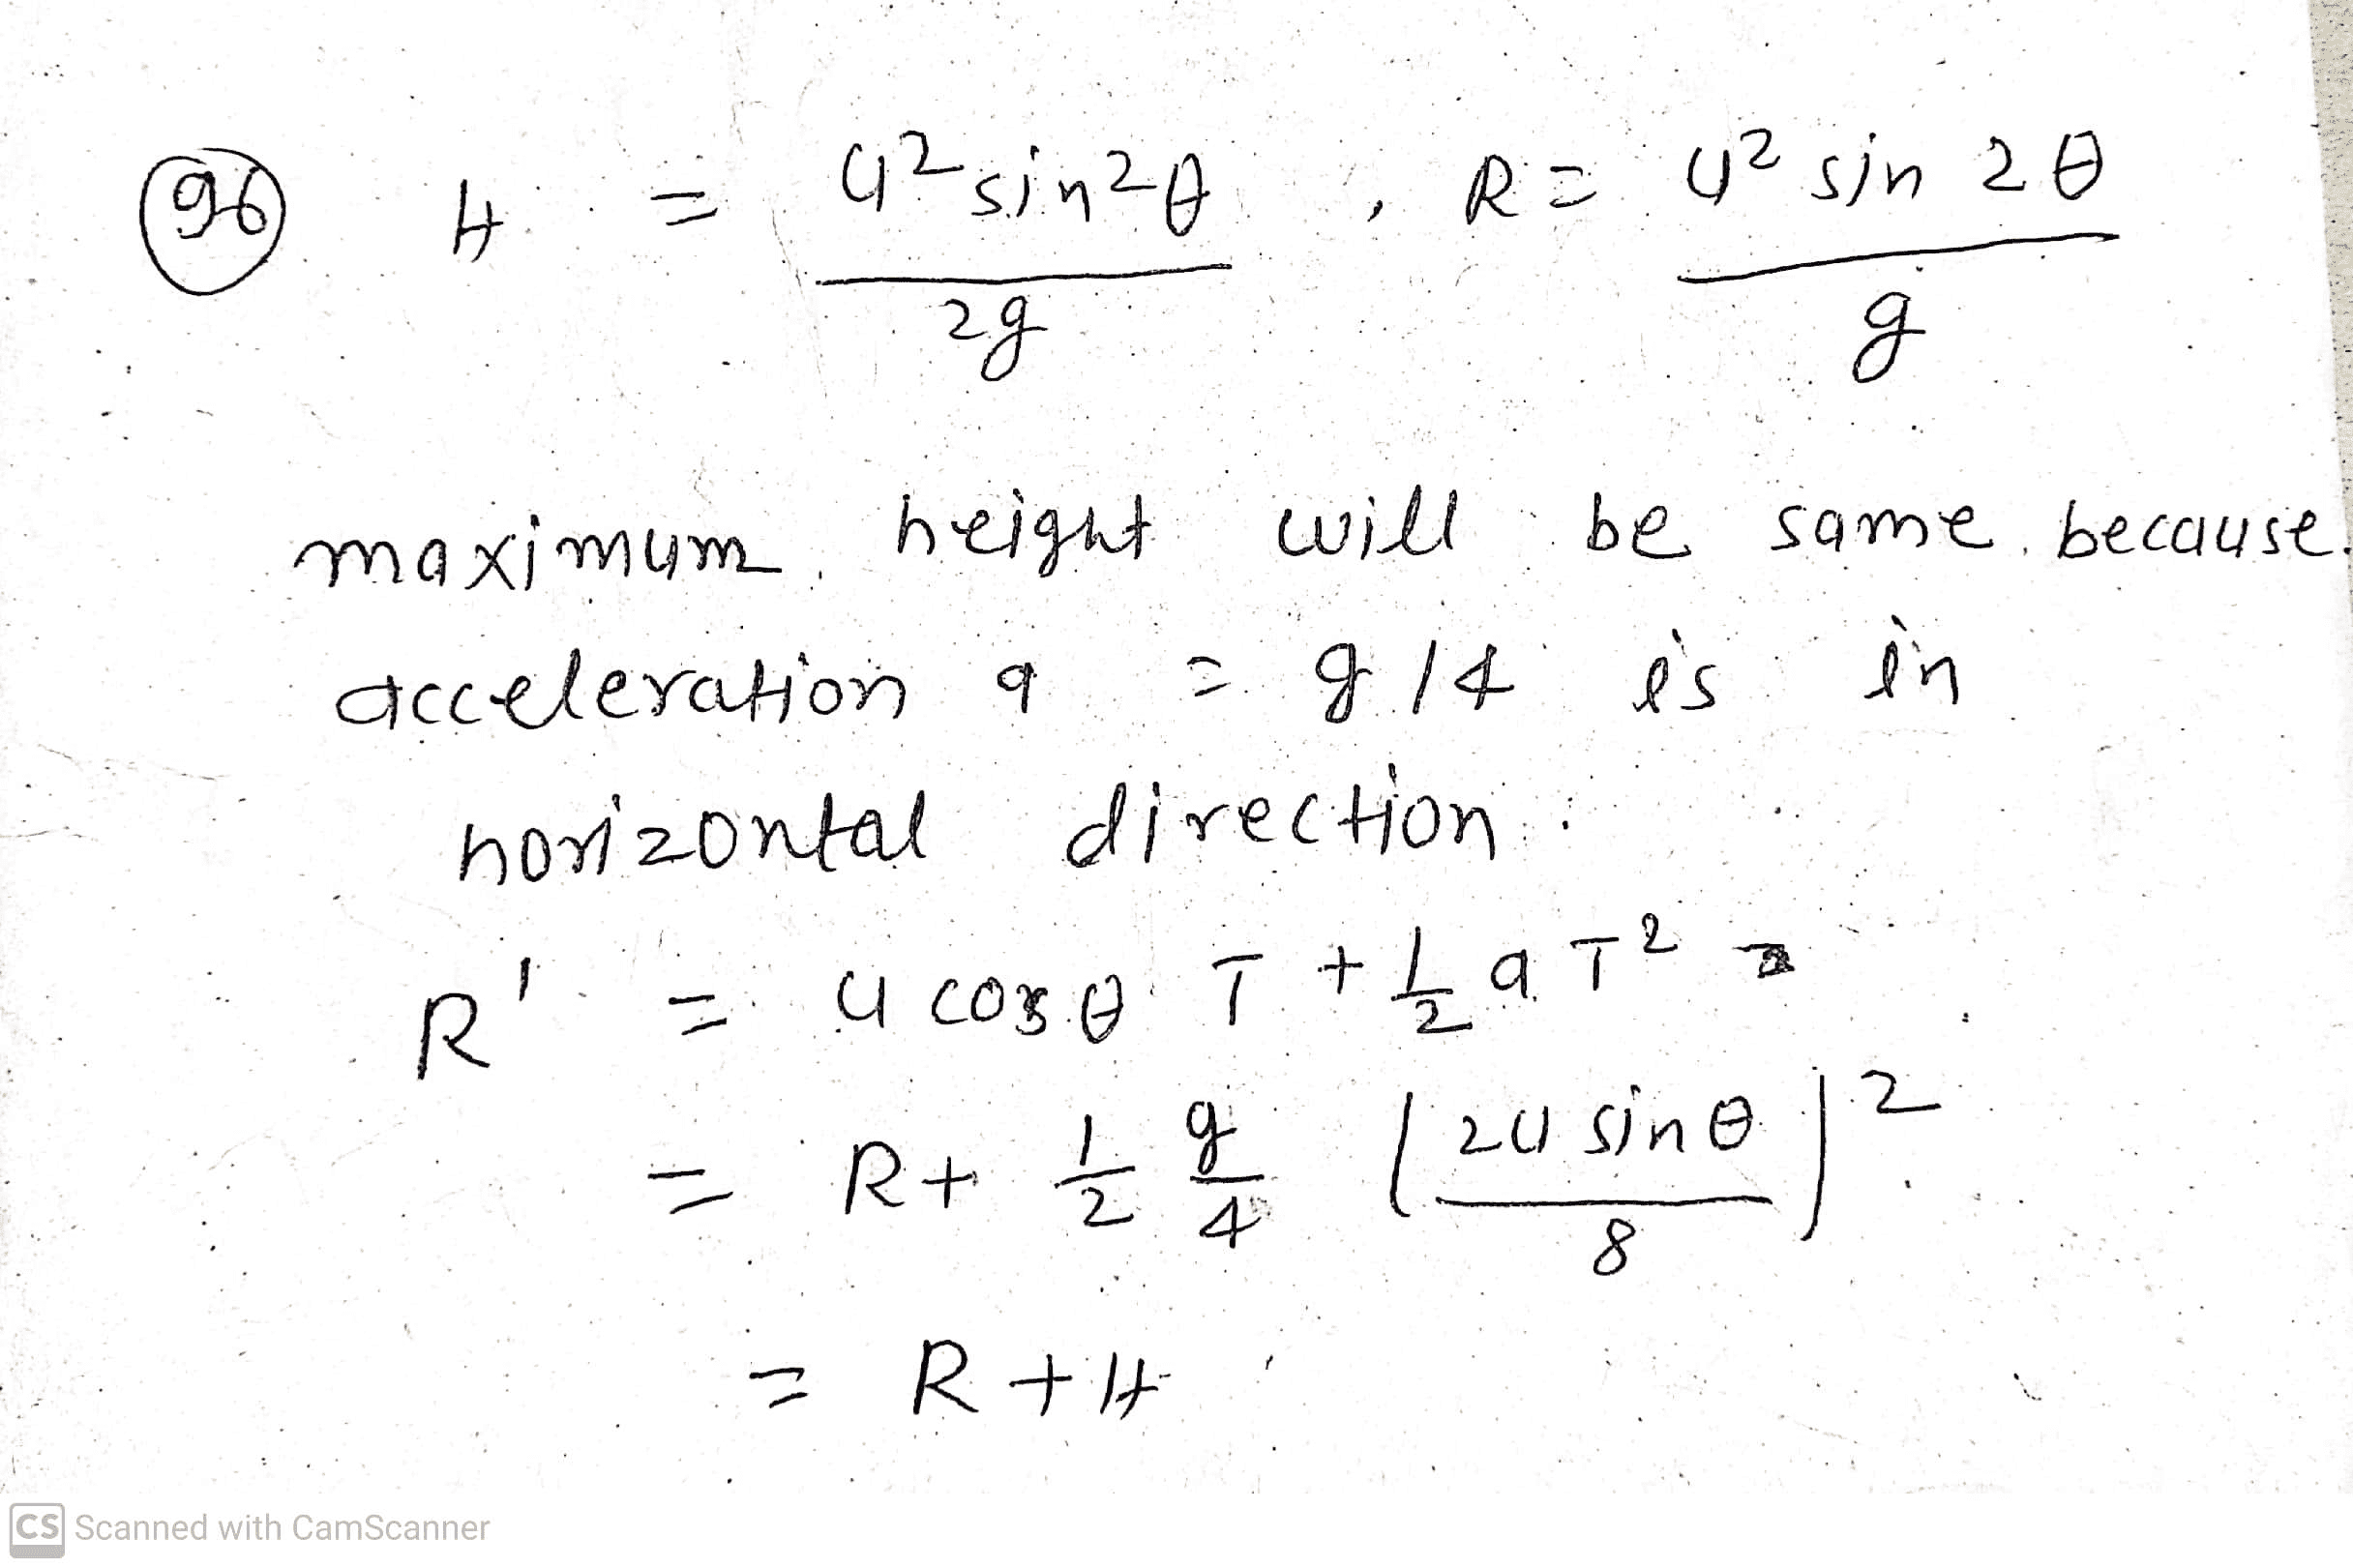 96 H = u² sin²θ / 2g , R = u² sin 2θ / g
maximum height will be same because
acceleration a = g/4 is in
horizontal direction.
R' = u cos θ T + 1/2 a T² =
= R + 1/2 g/4 (2u sin θ / 8)²
= R + H
CS Scanned with CamScanner